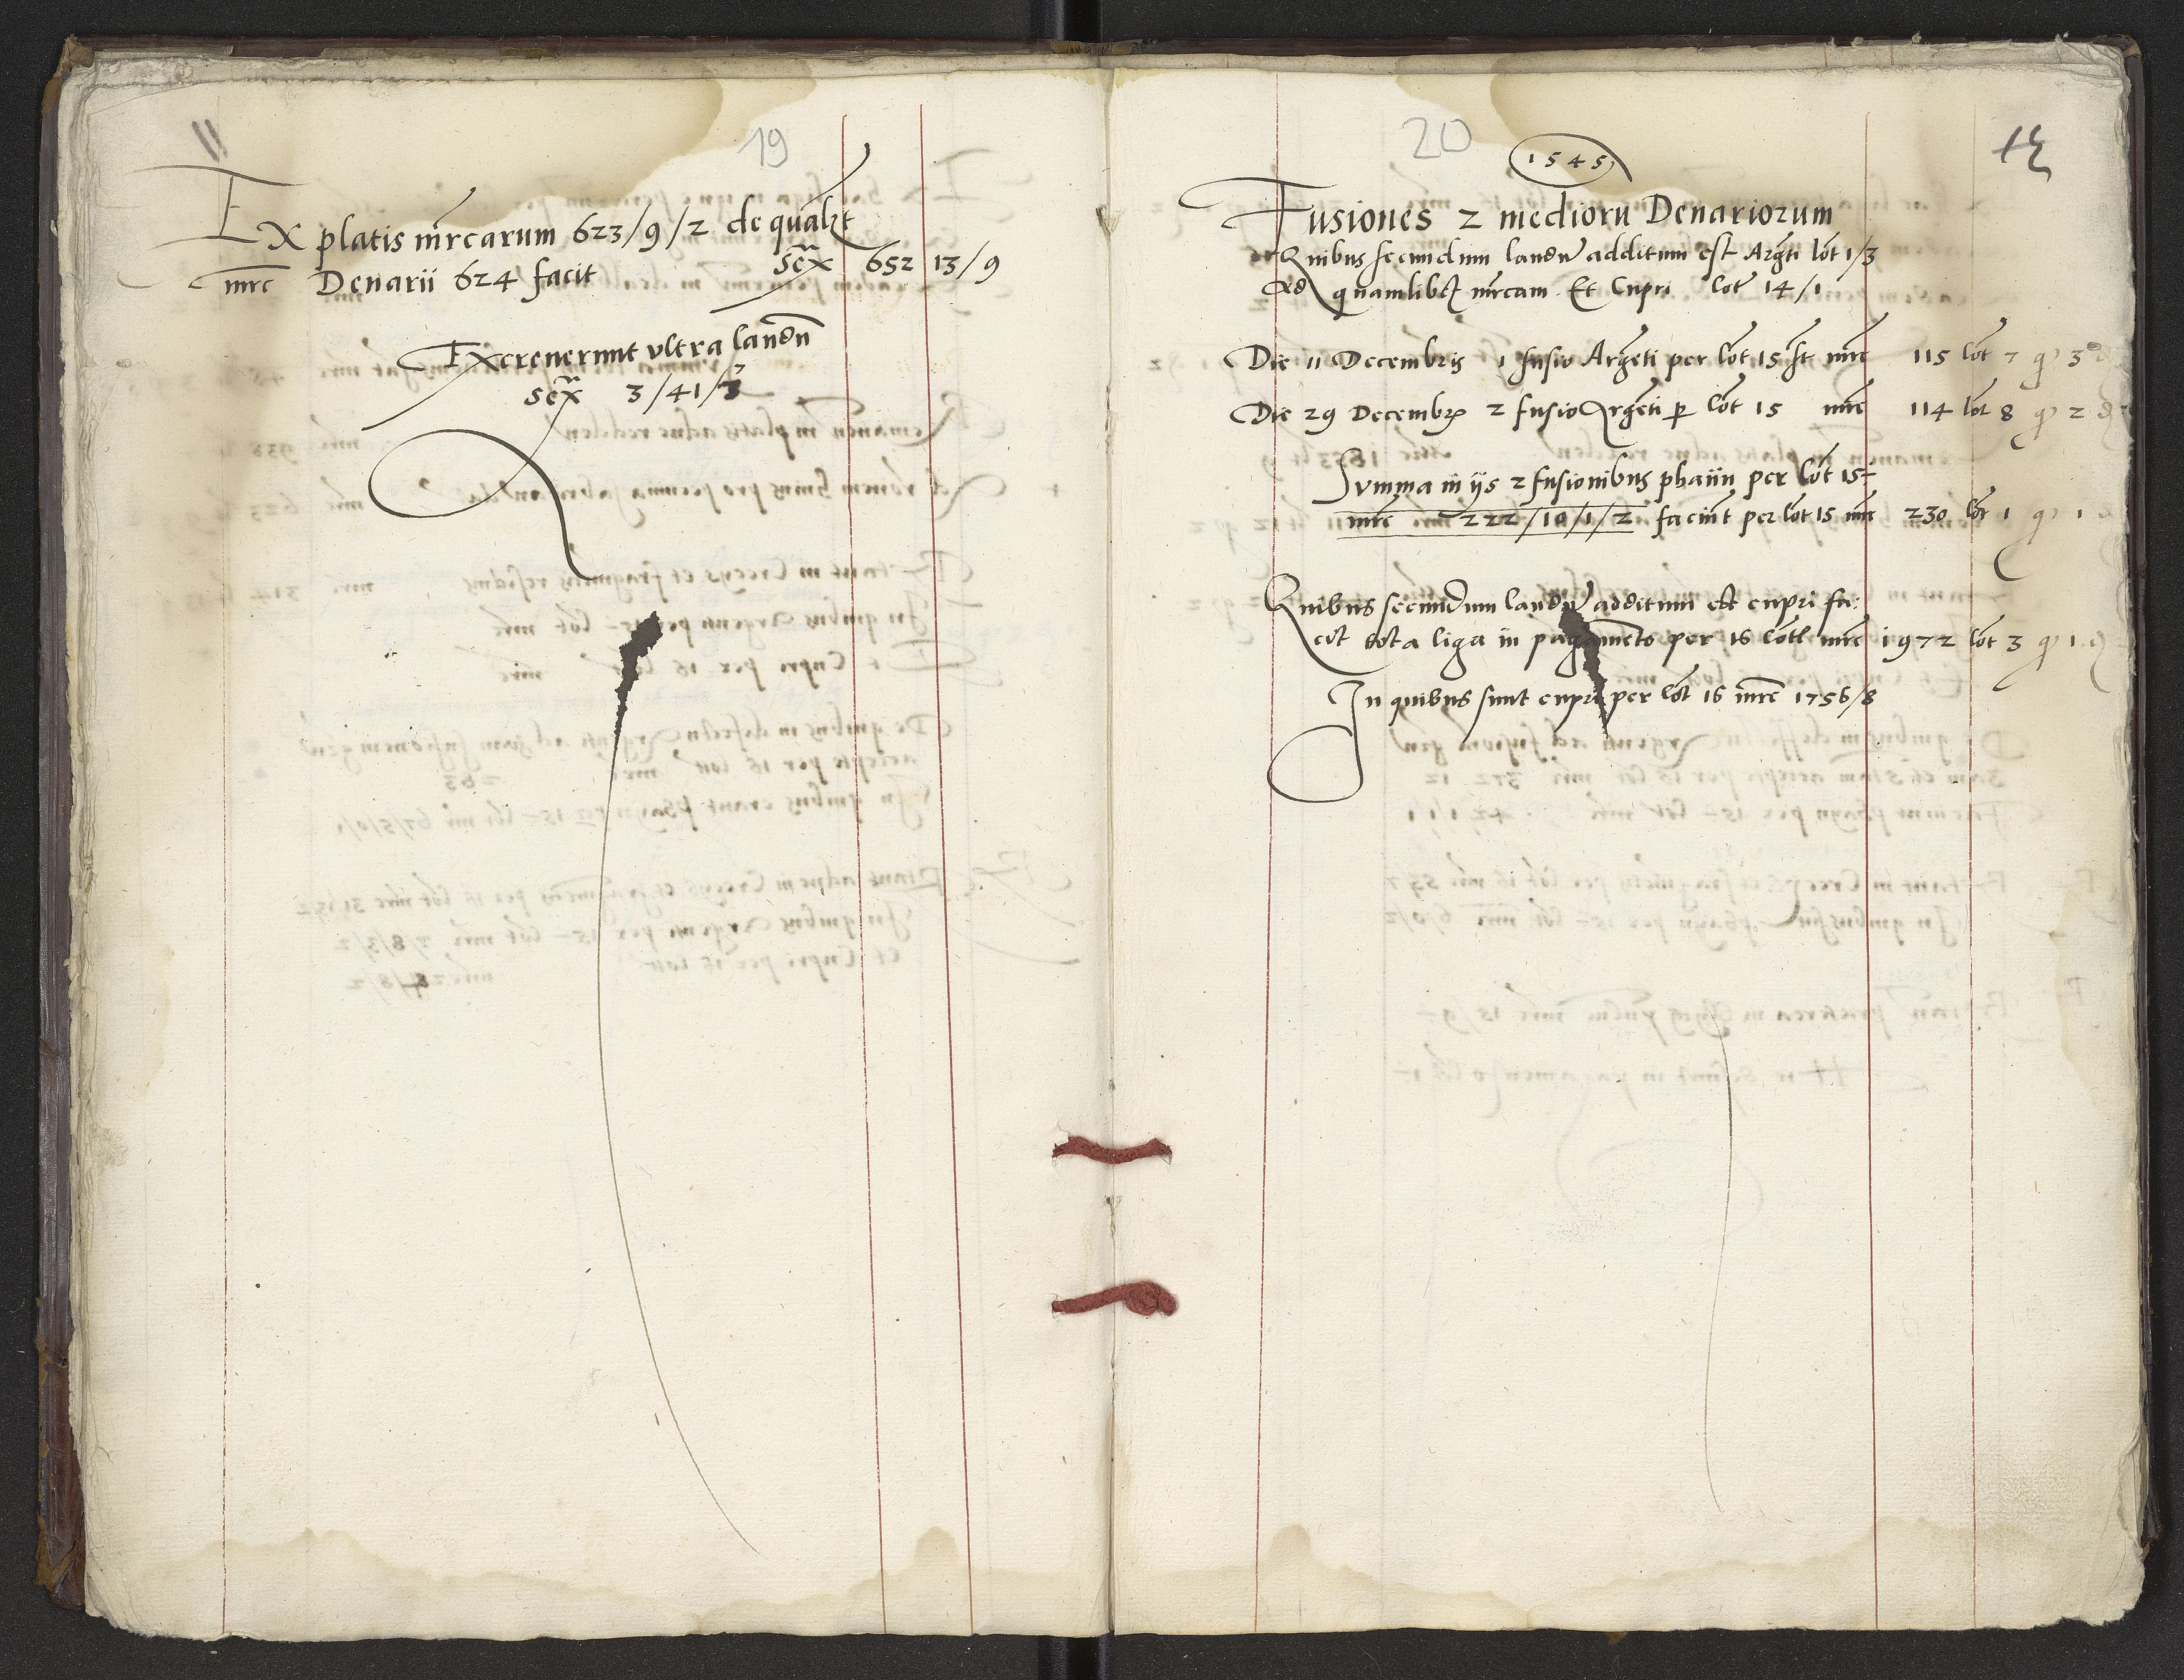 11
19
Ex platis mrcarum 623/9/2 de qualzt
mrc Denarii 624 facit sex 652 13/9
Excreuerunt vltra landu
sex 3/41/3
20
1545
Fusiones 2 medioru Denariorum
Quibus secundum landu additum est Argeti lot 1/3
Ad quamlibet mrcam Et Cupri lot 14/1
Die 11 Decembris 1 fusio Argeti per lot 15 ft mrc 115 lot 7 q 3
Die 29 Decembr 2 fusio Argeti p lot 15 mrc 114 lot 8 q 2
Summa in ijs 2 fusionibus phaiin per lot 15
mrc 222/10/1/2 faciut per lot 15 mrc 230 lot 1 q 1
Quibus secundum landu additum est cupri fa:
cit tota liga in pagamento per 16 lot mrc 1972 lot 3 q 1
In quibus sunt cupri per lot 16 mrc 1756/8